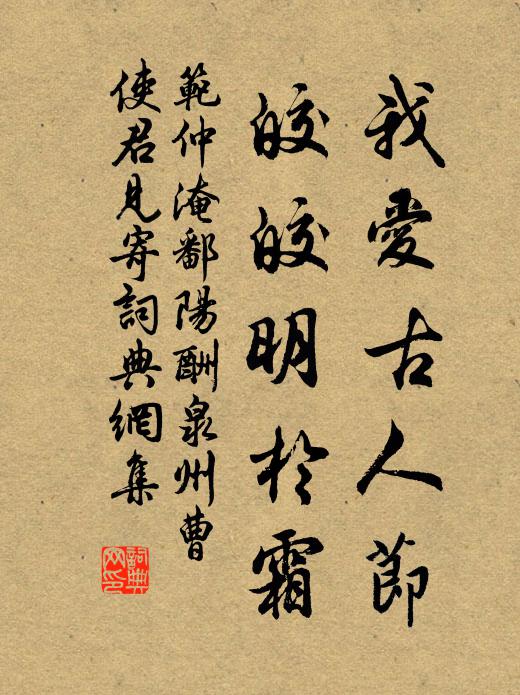 我愛古人節
皎皎明於霜
範仲淹鄱陽酬泉州曹
使君見寄詞典網集
詞典
網印